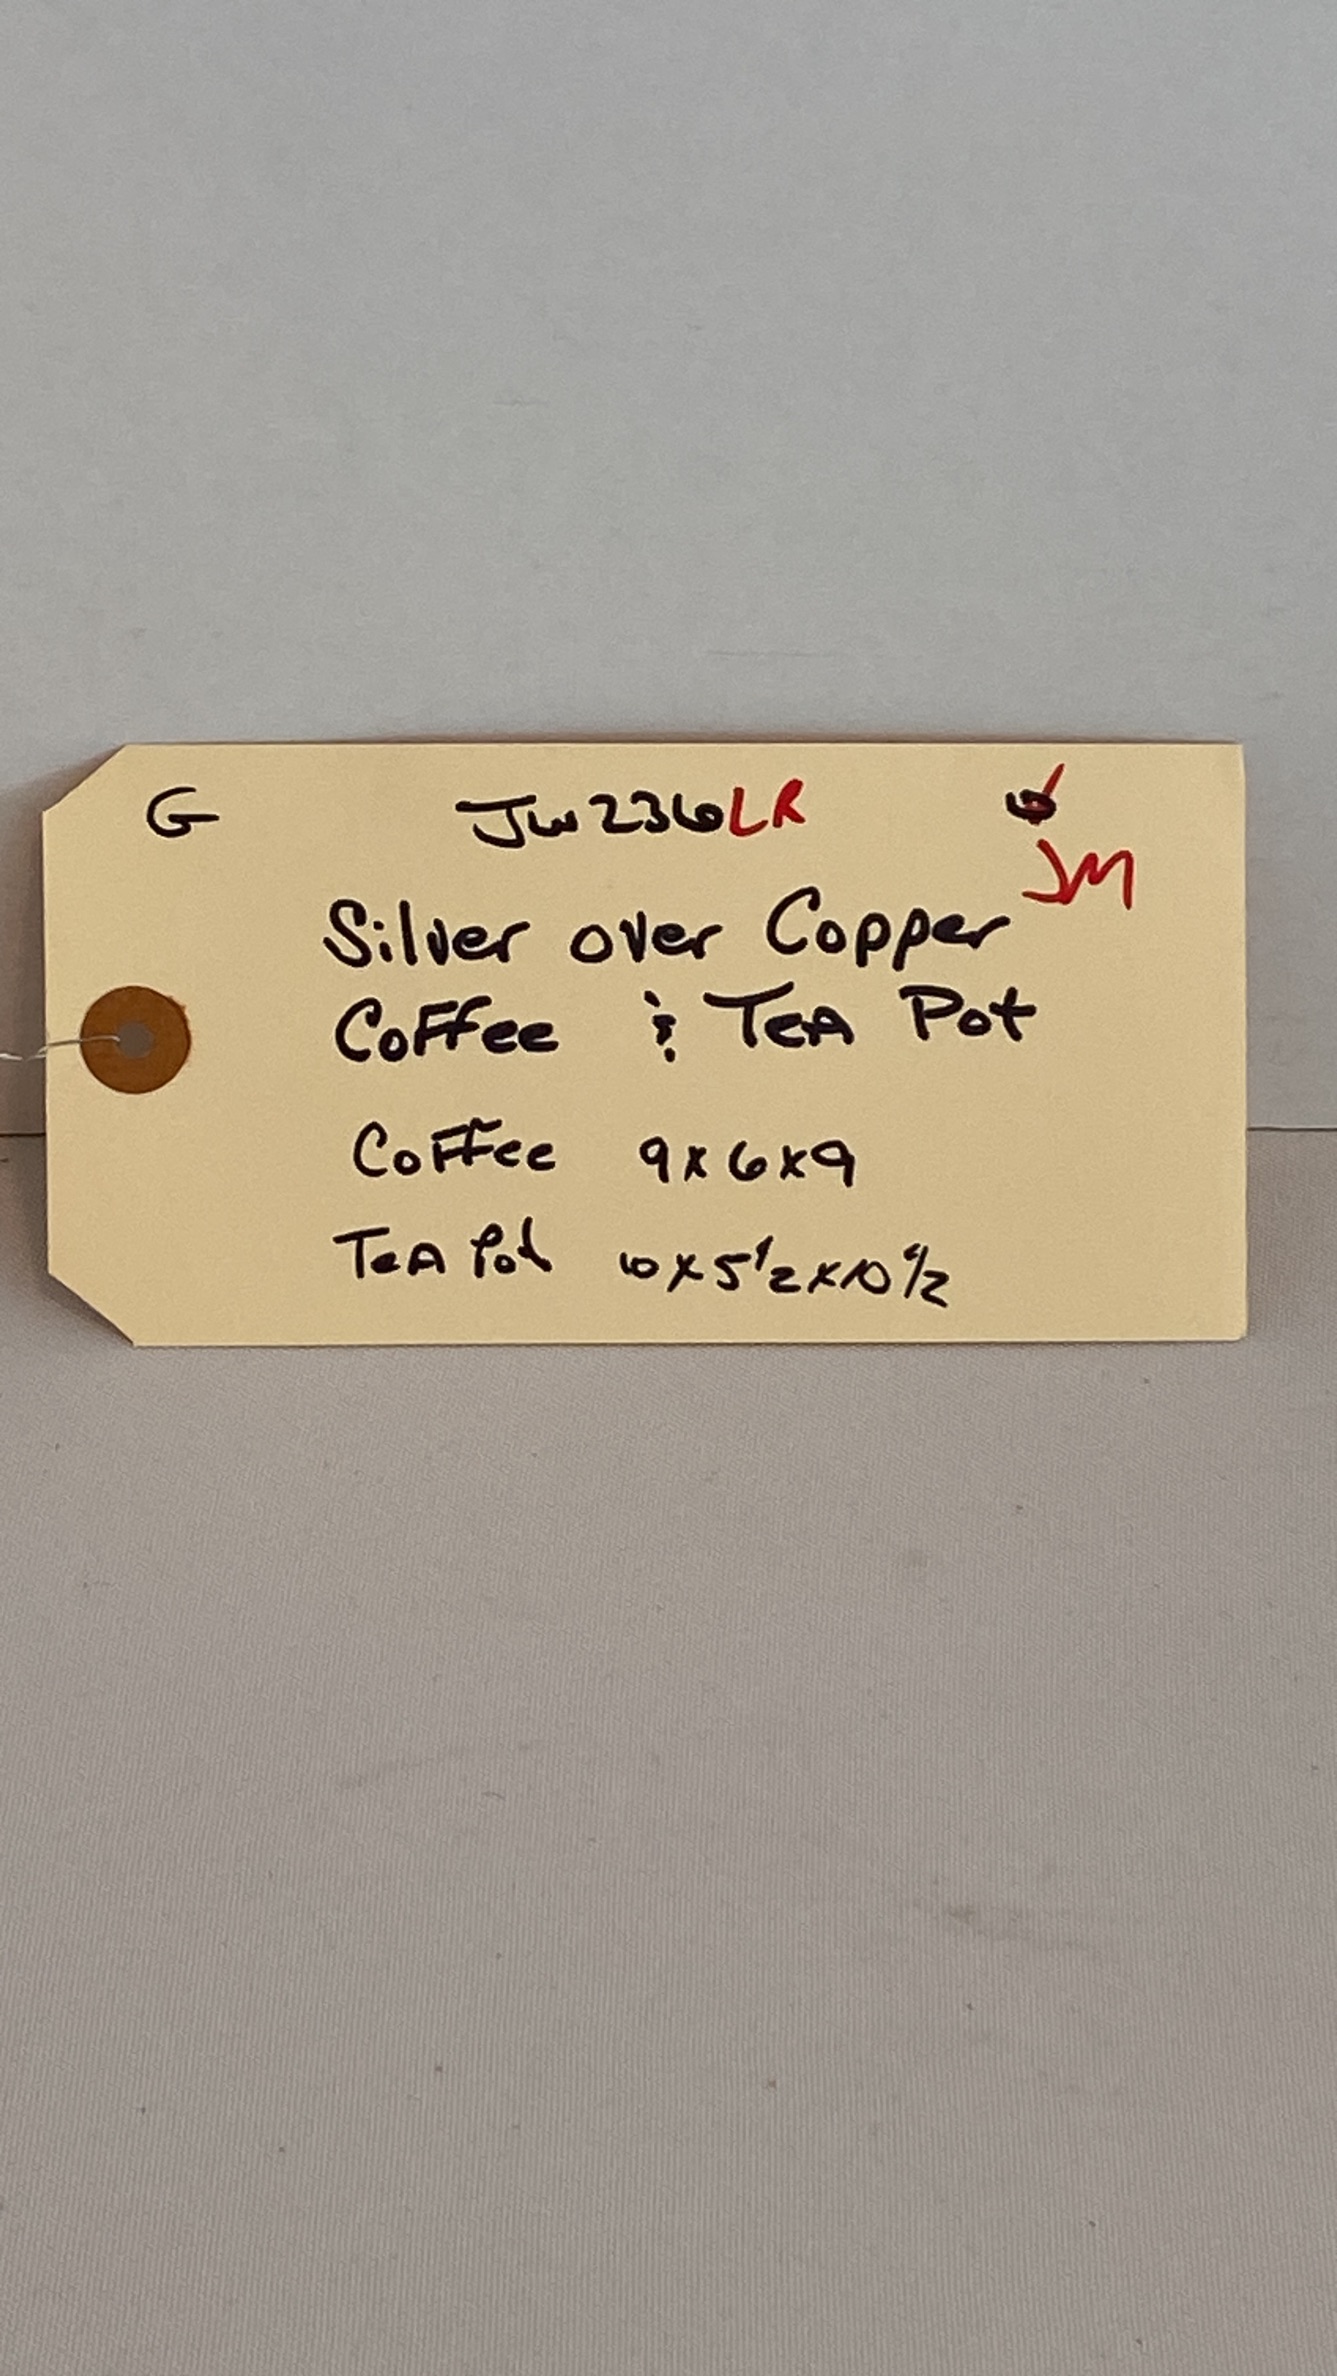 G JW236LR
JM
Silver over Copper
Coffee & Tea Pot
Coffee 9x6x9
Tea Pot 10x5 1/2x10 1/2